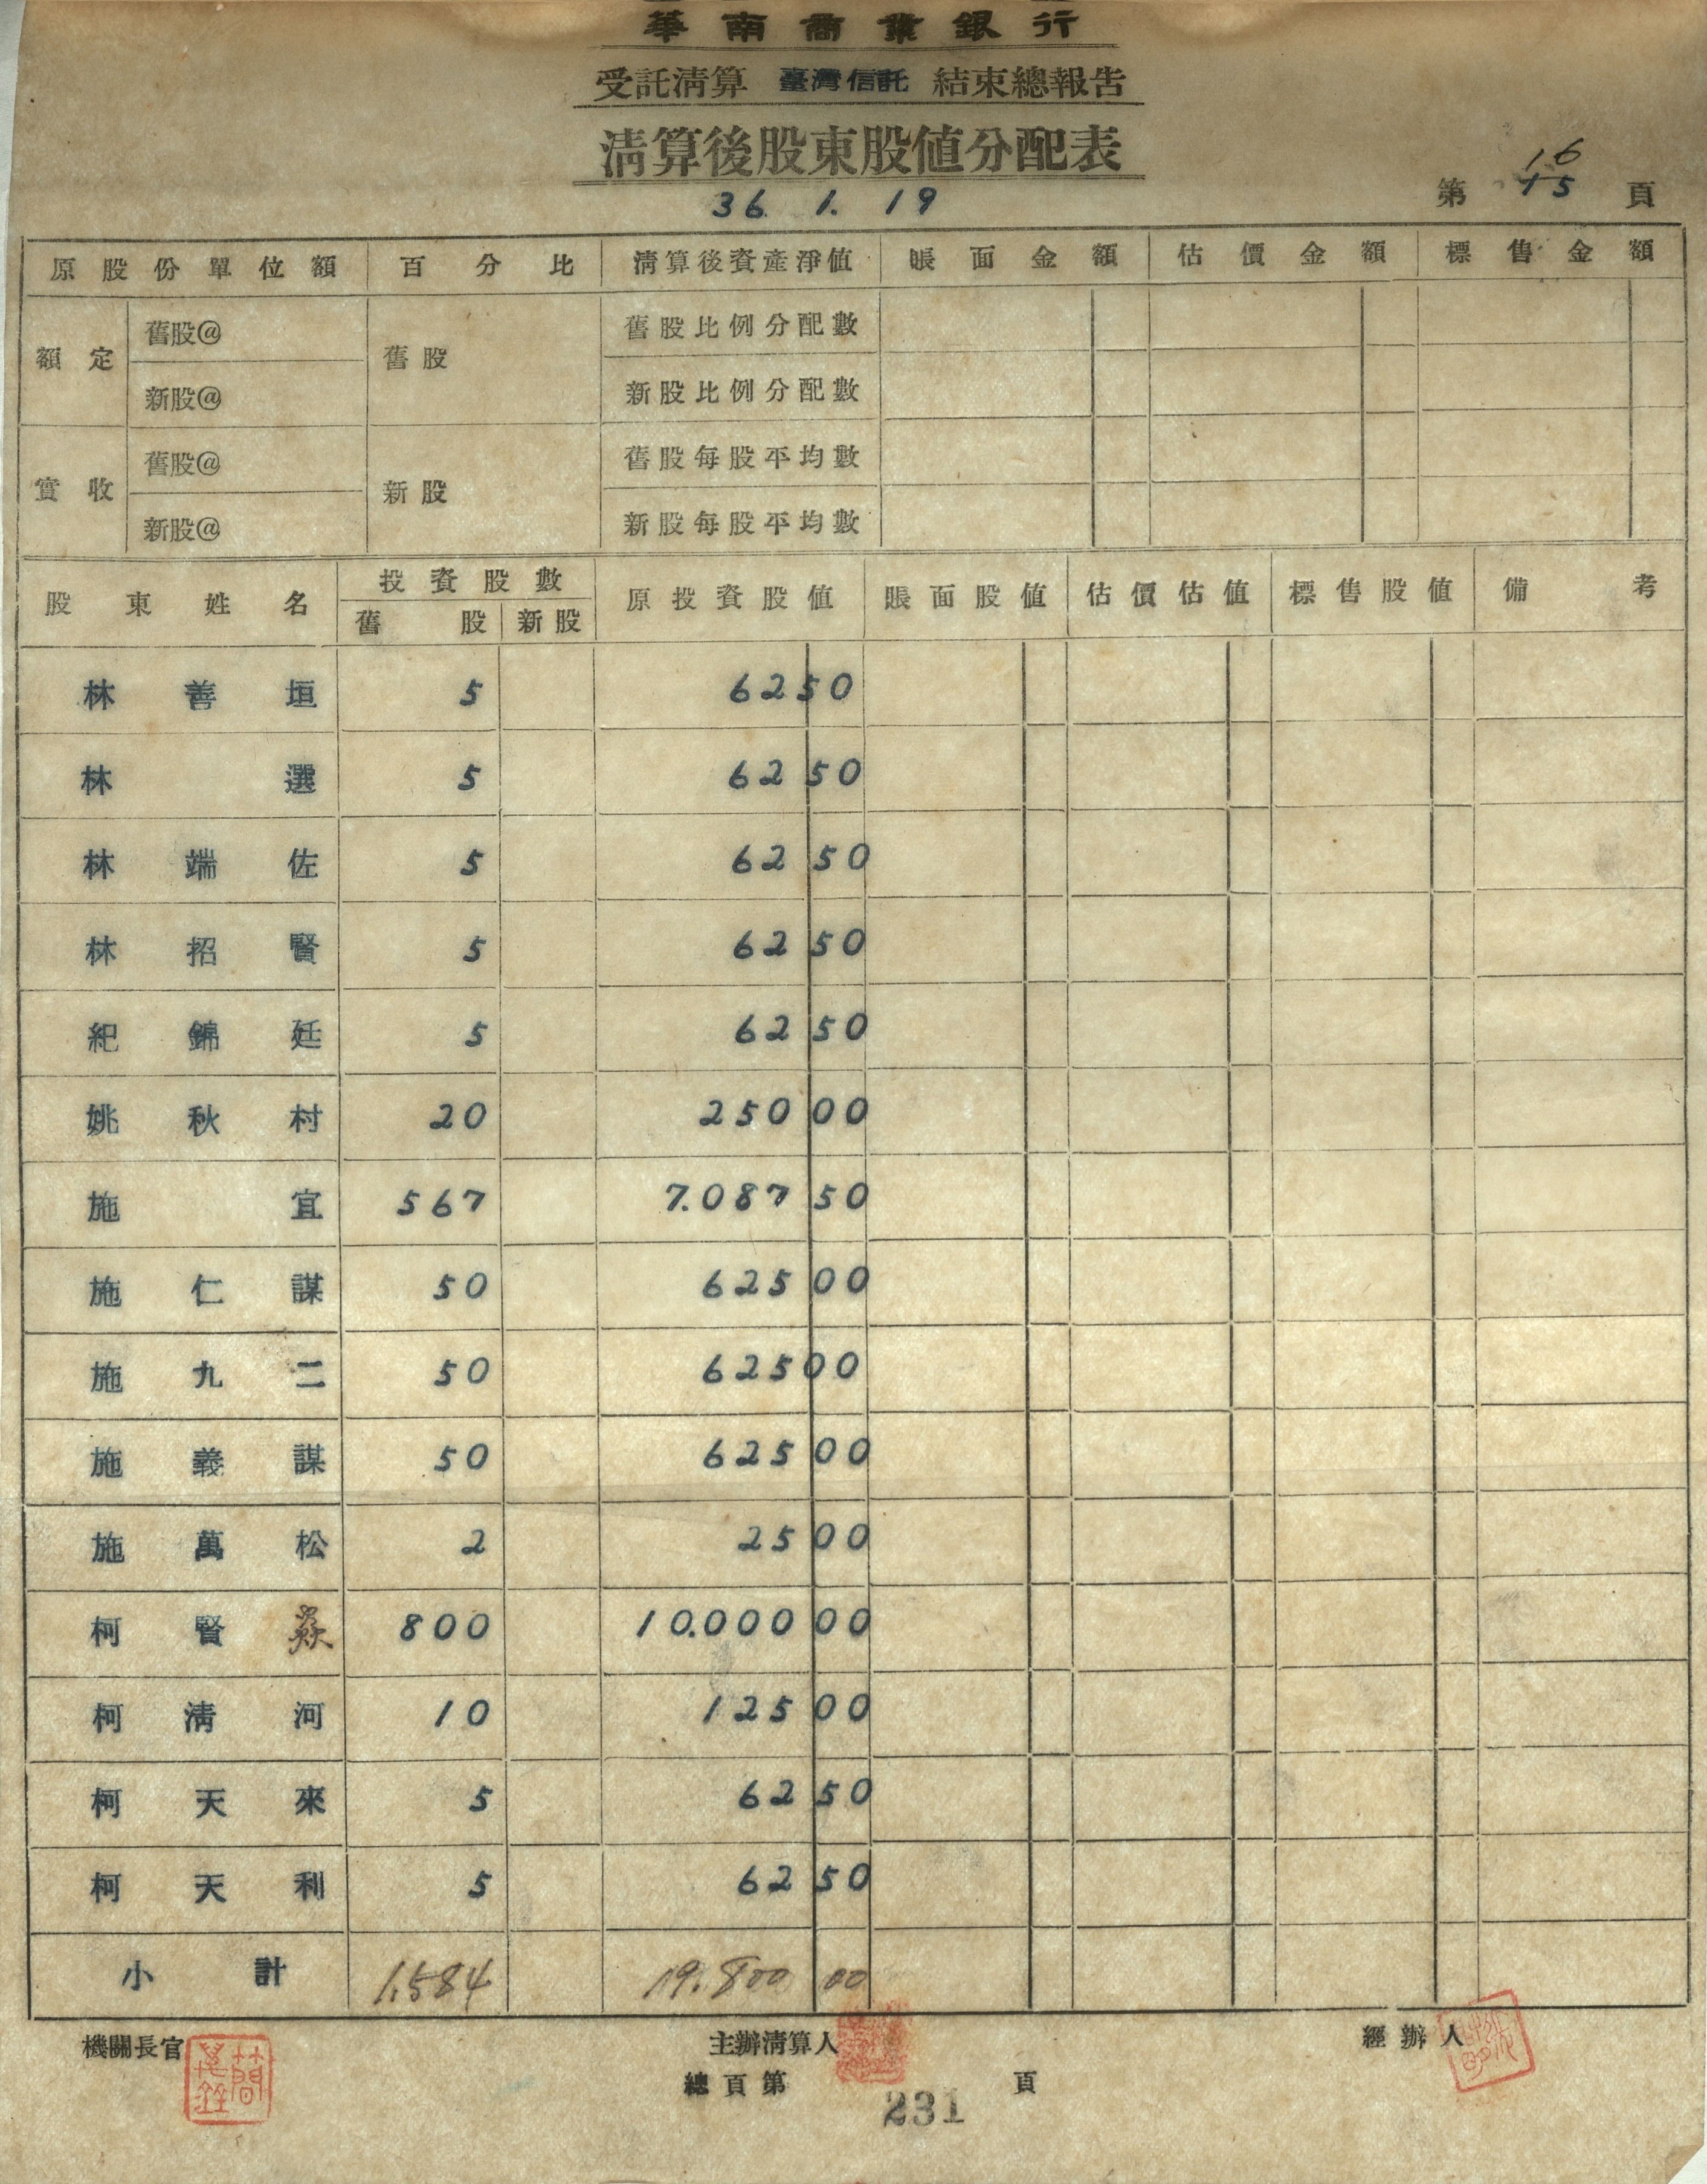 華南商業銀行
受託清算 臺灣信託 結束總報告
清算後股東股値分配表
36. 1. 19
第 16 15 頁
原股份單位額 百分比 清算後資產淨値 賬面金額 估價金額 標售金額
額定 舊股@ 舊股 舊股比例分配數
新股@ 新股比例分配數
實收 舊股@ 新股 舊股每股平均數
新股@ 新股每股平均數
股東姓名 投資股數 原投資股値 賬面股値 估價估値 標售股値 備考
舊股 新股
林善垣 5 62 50
林選 5 62 50
林端佐 5 62 50
林招賢 5 62 50
紀錦廷 5 62 50
姚秋村 20 250 00
施宜 567 7.087 50
施仁謀 50 625 00
施九二 50 625 00
施義謀 50 625 00
施萬松 2 25 00
柯賢焱 800 10.000 00
柯清河 10 125 00
柯天來 5 62 50
柯天利 5 62 50
小計 1.584 19.800 00
機關長官 主辦清算人 經辦人
總頁第 231 頁